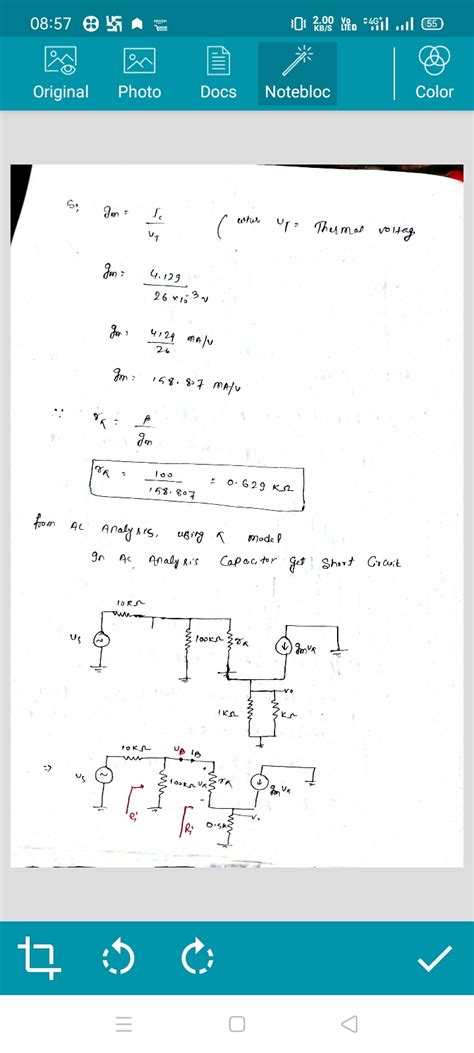 08:57 2.00 KB/S Vo LTED 4G 55
Original Photo Docs Notebloc Color
S; gm = Ic / UT ( where UT = Thermal voltag
gm = 4.129 / 26 × 10⁻³ V
gm = 4129 / 26 mA/V
gm = 158.807 mA/V
∵ rπ = β / gm
rπ = 100 / 158.807 = 0.629 KΩ
from AC Analysis, using π model
In AC Analysis Capacitor get short Circuit
10KΩ
Us 100KΩ rπ gmVπ
Vo
1KΩ KΩ
10KΩ VB IB
⇒ Us 100KΩ Vπ rπ gmVπ
+
-
Ri Ri 0.5K Vo